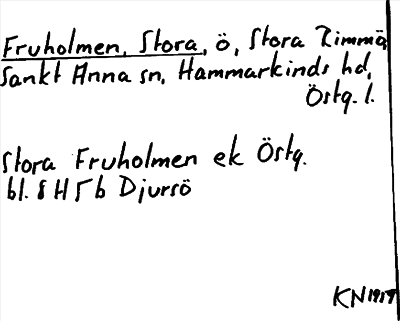 Fruholmen, Stora, ö, Stora Rimmö,
Sankt Anna sn, Hammarkinds hd,
Östg. l.
Stora Fruholmen ek Östg.
bl. 8 H 5 b Djursö
KN